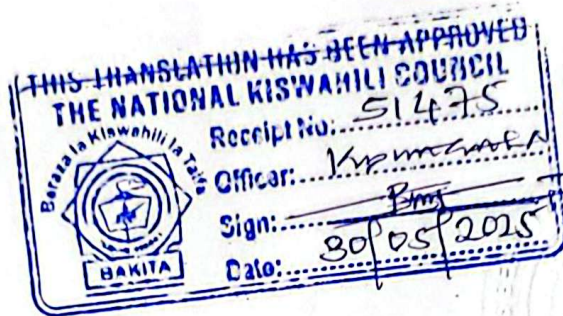 THIS TRANSLATION HAS BEEN APPROVED
THE NATIONAL KISWAHILI COUNCIL
Baraza la Kiswahili la Taifa
BAKITA
Receipt No: 51475
Officer:
Sign:
Date: 30/05/2025